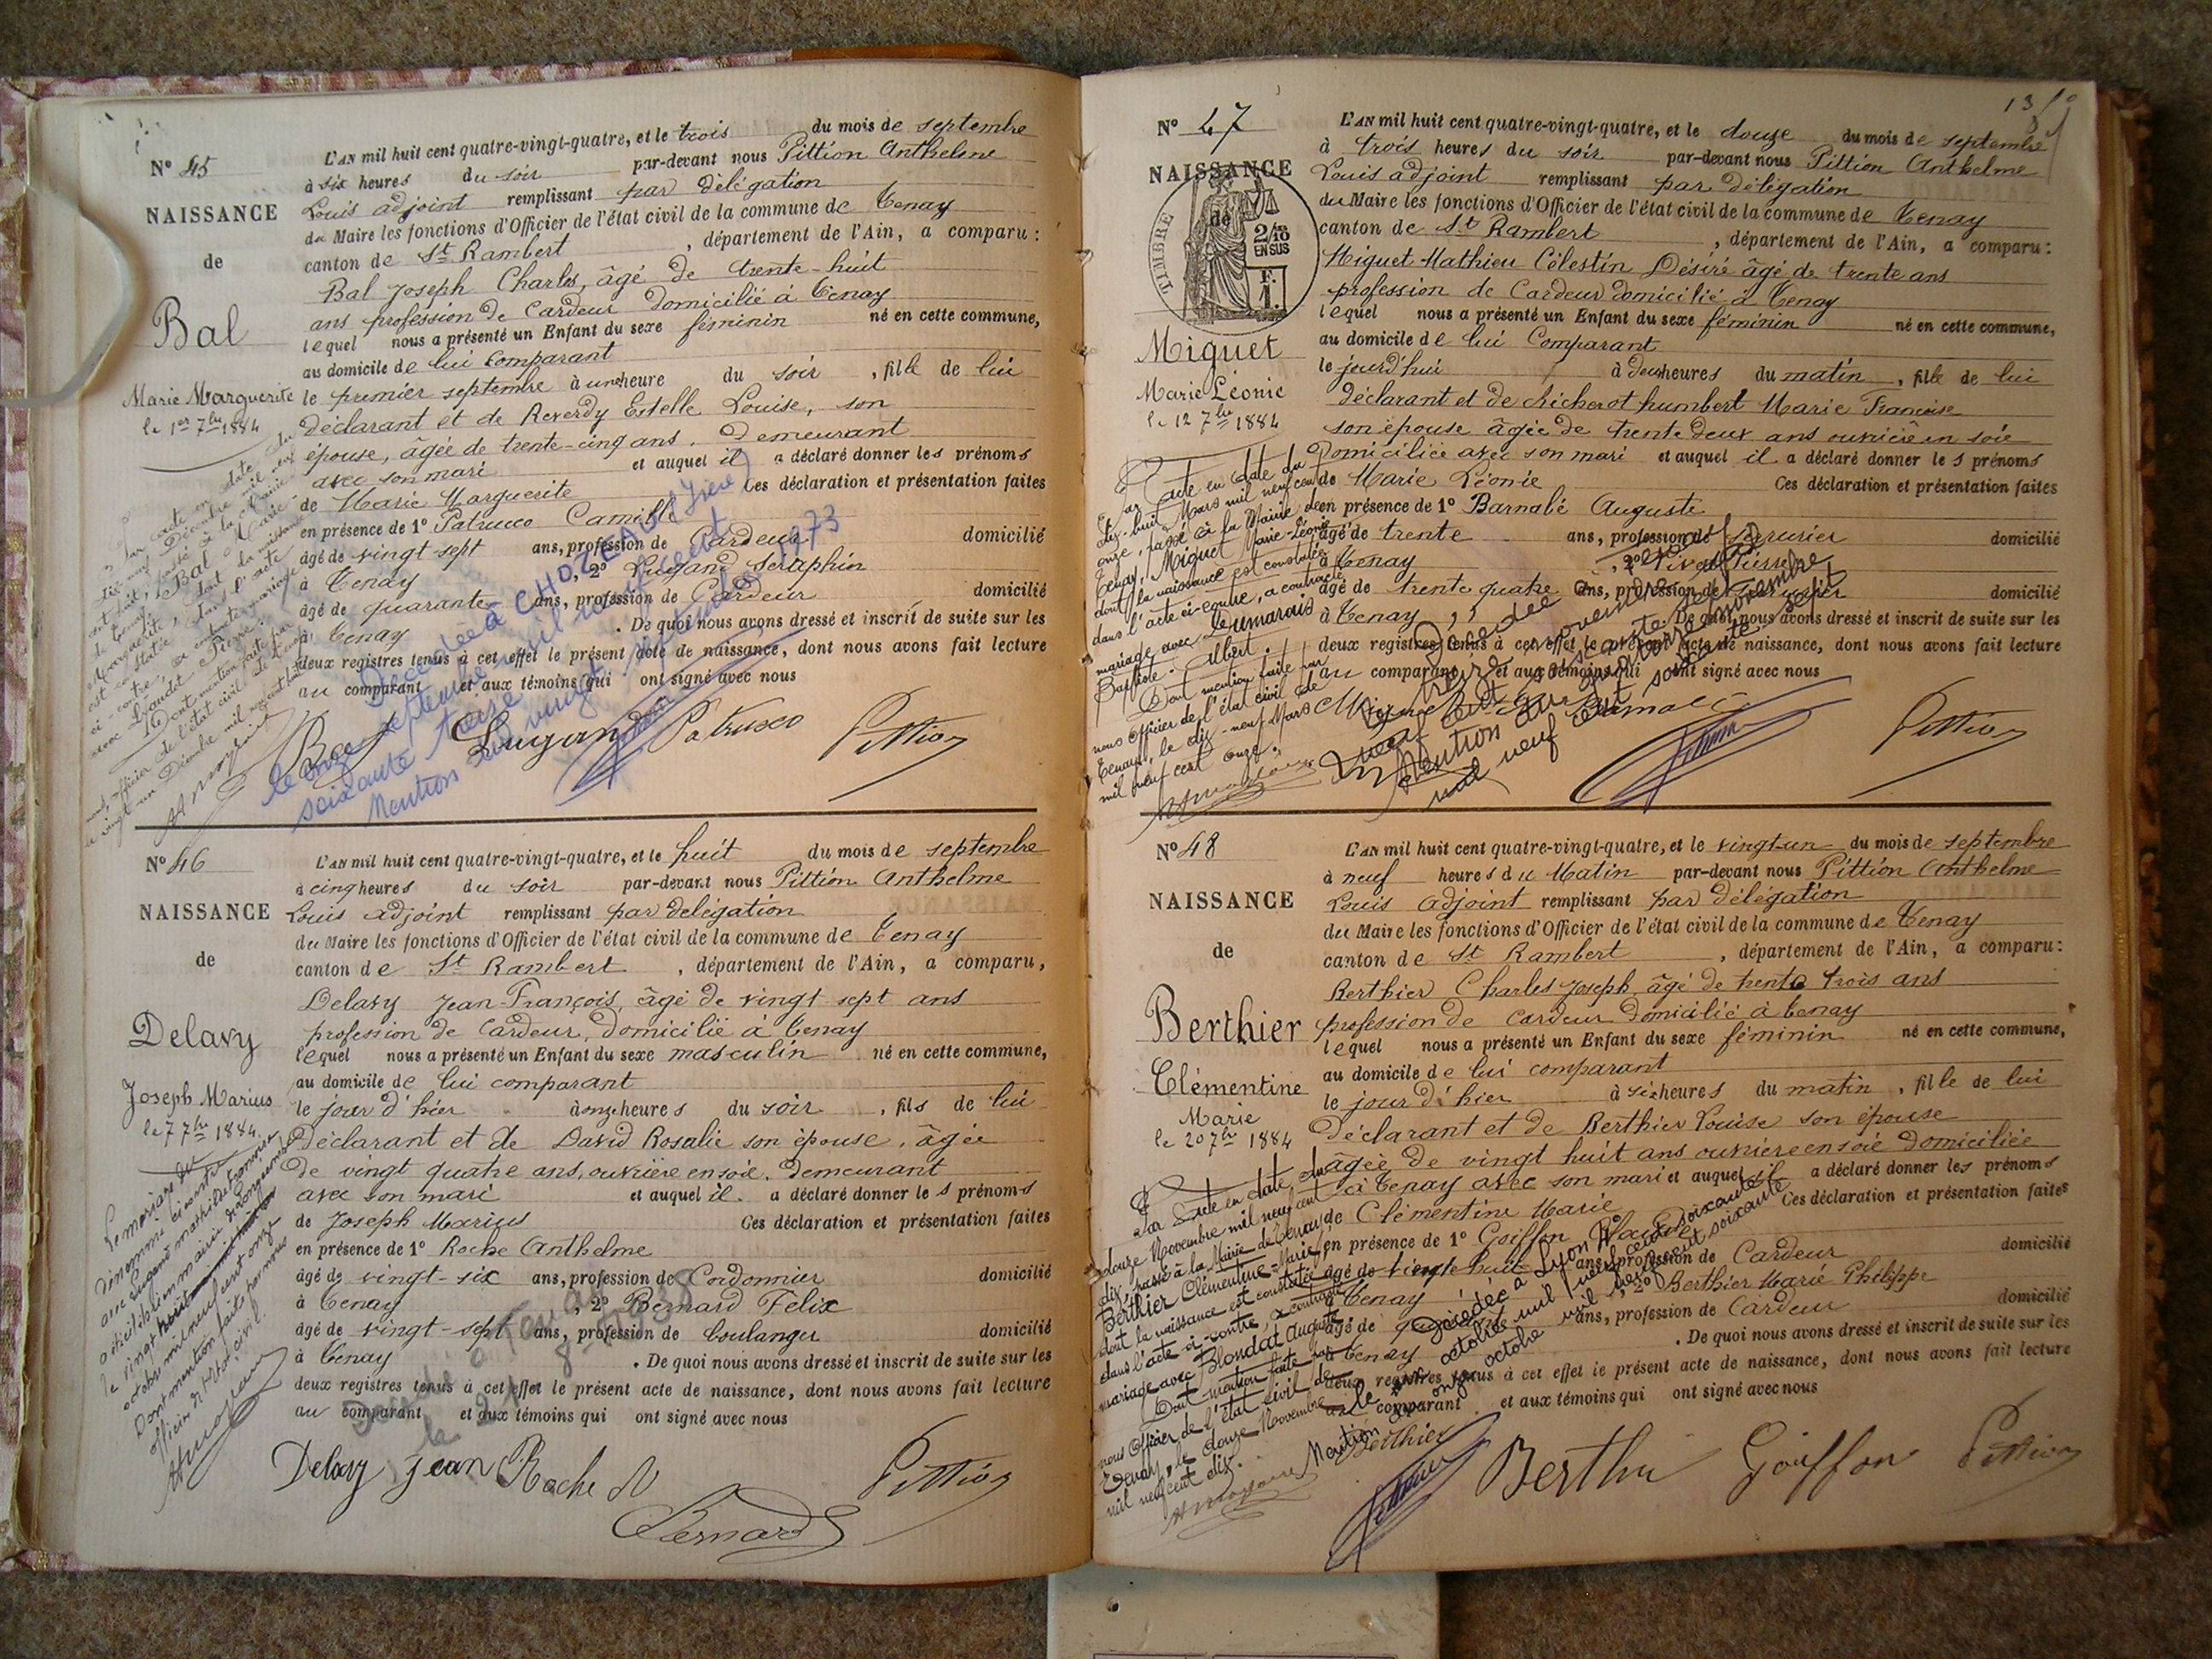 N° 45
NAISSANCE
de
Bal
Marie Marguerite
le 1er 7bre 1884
L'AN mil huit cent quatre-vingt-quatre, et le trois du mois de septembre
à six heures du soir par-devant nous Pittion Anthelme
Louis adjoint remplissant par délégation
du Maire les fonctions d'Officier de l'état civil de la commune de Tenay
canton de St Rambert, département de l'Ain, a comparu :
Bal Joseph Charles, âgé de trente-huit
ans profession de Cardeur domicilié à Tenay
lequel nous a présenté un Enfant du sexe féminin né en cette commune,
au domicile de lui comparant
le premier septembre à une heure du soir, fille de lui
déclarant et de Reverdy Estelle Louise, son
épouse, âgée de trente-cinq ans. Demeurant
avec son mari et auquel il a déclaré donner les prénoms
de Marie Marguerite Ces déclaration et présentation faites
en présence de 1° Patrucco Camille
âgé de vingt sept ans, profession de Cardeur domicilié
à Tenay, 2° Lugand Séraphin
âgé de quarante ans, profession de Cardeur domicilié
à Tenay. De quoi nous avons dressé et inscrit de suite sur les
deux registres tenus à cet effet le présent acte de naissance, dont nous avons fait lecture
au comparant et aux témoins qui ont signé avec nous
Décédée à CHOZEAU (Isère)
le onze septembre mil neuf cent
soixante treize
Mention du vingt septembre 1973
Bal Lugand Patrucco Pittion
N° 46
NAISSANCE
de
Delavy
Joseph Marius
le 7 7bre 1884
Le mariage du
dénommé ci-contre
L'AN mil huit cent quatre-vingt-quatre, et le huit du mois de septembre
à cinq heures du soir par-devant nous Pittion Anthelme
Louis adjoint remplissant par délégation
du Maire les fonctions d'Officier de l'état civil de la commune de Tenay
canton de St Rambert, département de l'Ain, a comparu,
Delavy Jean-François, âgé de vingt sept ans
profession de Cardeur, domicilié à Tenay
lequel nous a présenté un Enfant du sexe masculin né en cette commune,
au domicile de lui comparant
le jour d'hier à onze heures du soir, fils de lui
Déclarant et de David Rosalie son épouse, âgée
de vingt quatre ans, ouvrière en soie. Demeurant
avec son mari et auquel il a déclaré donner les prénoms
de Joseph Marius Ces déclaration et présentation faites
en présence de 1° Roche Anthelme
âgé de vingt-six ans, profession de Cordonnier domicilié
à Tenay, 2° Bernard Félix
âgé de vingt-sept ans, profession de boulanger domicilié
à Tenay. De quoi nous avons dressé et inscrit de suite sur les
deux registres tenus à cet effet le présent acte de naissance, dont nous avons fait lecture
au comparant et aux témoins qui ont signé avec nous
Delavy Jean Roche A Pittion
Bernard
N° 47
NAISSANCE
de
TIMBRE
2/10
EN SUS
F.
1.
Miguet
Marie Léonie
le 12 7bre 1884
Par acte en date du
dix-huit Mars mil neuf cent
onze, passé à la Mairie de
Tenay, Miguet Marie-Léonie
dont la naissance est constatée
dans l'acte ci-contre, a contracté
mariage avec Dumarais
Baptiste-Albert.
Dont mention faite par
nous Officier de l'état civil de
Tenay, le dix-neuf Mars
mil neuf cent onze.
13
L'AN mil huit cent quatre-vingt-quatre, et le douze du mois de septembre
à trois heures du soir par-devant nous Pittion Anthelme
Louis adjoint remplissant par délégation
du Maire les fonctions d'Officier de l'état civil de la commune de Tenay
canton de St Rambert, département de l'Ain, a comparu :
Miguet Mathieu Célestin Désiré âgé de trente ans
profession de Cardeur domicilié à Tenay
lequel nous a présenté un Enfant du sexe féminin né en cette commune,
au domicile de lui Comparant
le jourd'hui à deux heures du matin, fille de lui
déclarant et de Richerot humbert Marie Françoise
son épouse âgée de trente deux ans ouvrière en soie
Domiciliée avec son mari et auquel il a déclaré donner les prénoms
de Marie Léonie Ces déclaration et présentation faites
en présence de 1° Barnabé Auguste
âgé de trente ans, profession de domicilié
à Tenay, 2°
âgé de trente quatre ans, profession de domicilié
à Tenay. De quoi nous avons dressé et inscrit de suite sur les
deux registres tenus à cet effet le présent acte de naissance, dont nous avons fait lecture
au comparant et aux témoins qui ont signé avec nous
Pittion
N° 48
NAISSANCE
de
Berthier
Clémentine
Marie
le 20 7bre 1884
Par acte en date du
douze Novembre mil neuf cent
dix, passé à la Mairie de Tenay
Berthier Clémentine-Marie
dont la naissance est constatée
dans l'acte ci-contre, a contracté
mariage avec Blondat Auguste
Dont mention faite par
nous Officier de l'état civil de
Tenay, le douze Novembre
mil neuf cent dix.
L'AN mil huit cent quatre-vingt-quatre, et le vingt-un du mois de septembre
à neuf heures du Matin par-devant nous Pittion Anthelme
Louis adjoint remplissant par délégation
du Maire les fonctions d'Officier de l'état civil de la commune de Tenay
canton de St Rambert, département de l'Ain, a comparu :
Berthier Charles Joseph âgé de trente trois ans
profession de cardeur domicilié à Tenay
lequel nous a présenté un Enfant du sexe féminin né en cette commune,
au domicile de lui comparant
le jour d'hier à six heures du matin, fille de lui
Déclarant et de Berthier Louise son épouse
âgée de vingt huit ans ouvrière en soie domiciliée
à Tenay avec son mari et auquel il a déclaré donner les prénoms
de Clémentine Marie Ces déclaration et présentation faites
en présence de 1° Goiffon
âgé de vingt huit ans, profession de Cardeur domicilié
à Tenay, 2° Berthier Marie Philippe
âgé de ans, profession de Cardeur domicilié
à Tenay. De quoi nous avons dressé et inscrit de suite sur les
deux registres tenus à cet effet le présent acte de naissance, dont nous avons fait lecture
au comparant et aux témoins qui ont signé avec nous
Berthier Berthier Goiffon Pittion